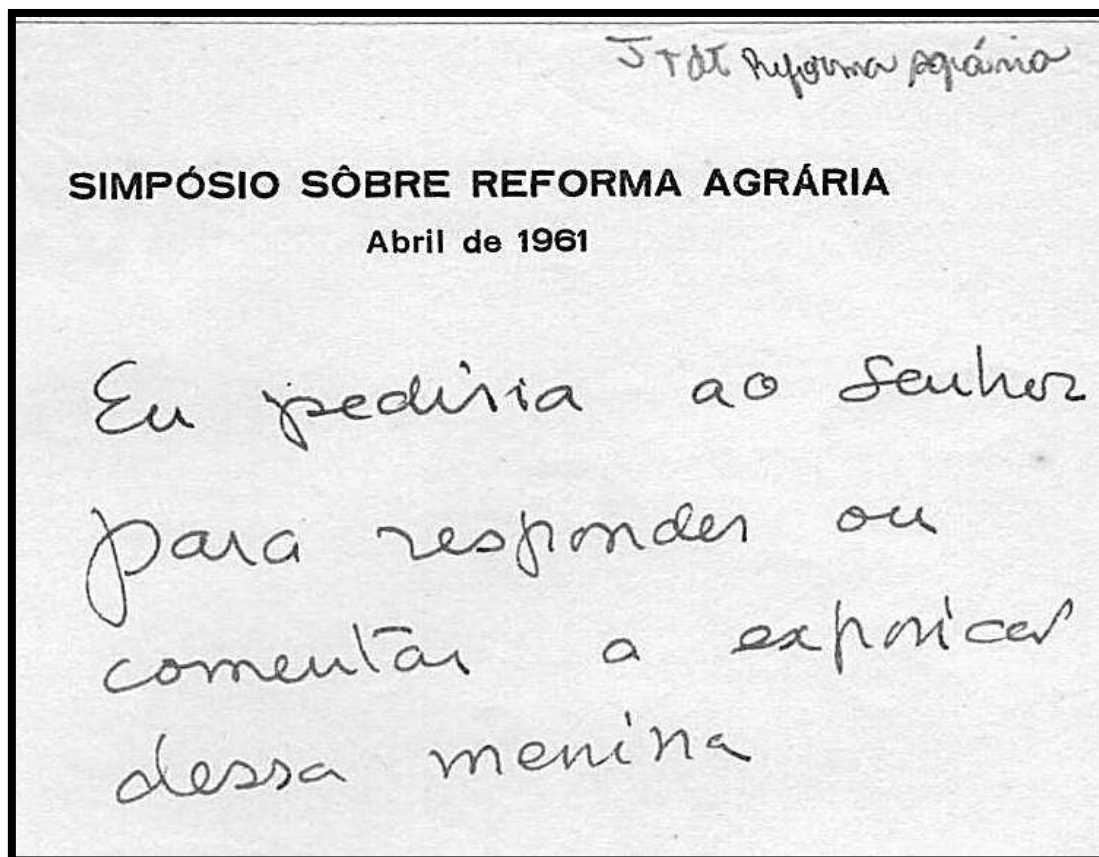 Reforma Agrária
SIMPÓSIO SÔBRE REFORMA AGRÁRIA
Abril de 1961
Eu pediria ao Senhor
para responder ou
comentar a exposicao
dessa menina